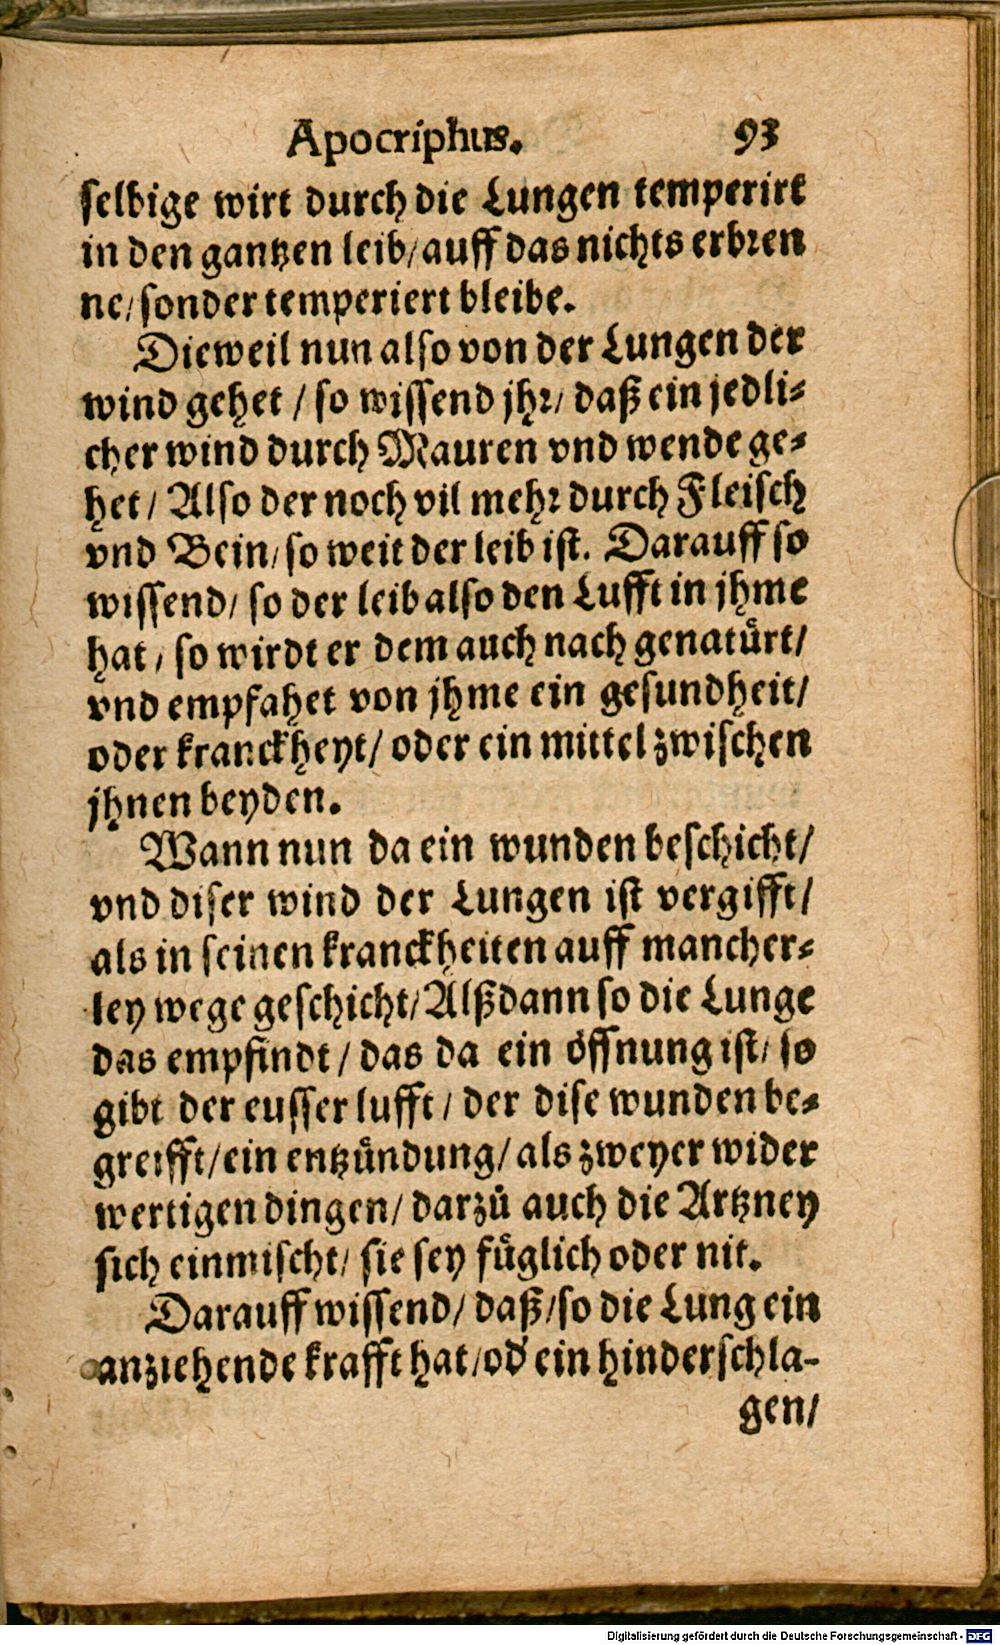 Apocriphus. 93
selbige wirt durch die Lungen temperirt
in den gantzen leib/ auff das nichts erbren
ne/ sonder temperiert bleibe.
Dieweil nun also von der Lungen der
wind gehet / so wissend jhr/ daß ein jedli-
cher wind durch Mauren vnd wende ge-
het/ Also der noch vil mehr durch Fleisch
vnd Bein/ so weit der leib ist. Darauff so
wissend/ so der leib also den Lufft in jhme
hat / so wirdt er dem auch nach genatürt/
vnd empfahet von jhme ein gesundheit/
oder kranckheyt/ oder ein mittel zwischen
jhnen beyden.
Wann nun da ein wunden beschicht/
vnd diser wind der Lungen ist vergifft/
als in seinen kranckheiten auff mancher-
ley wege geschicht/ Alßdann so die Lunge
das empfindt / das da ein öffnung ist/ so
gibt der eusser lufft / der dise wunden be-
greifft/ ein entzündung/ als zweyer wider
wertigen dingen/ darzů auch die Artzney
sich einmischt/ sie sey füglich oder nit.
Darauff wissend/ daß/ so die Lung ein
anziehende krafft hat/ od' ein hinderschla-
gen/
Digitalisierung gefördert durch die Deutsche Forschungsgemeinschaft - DFG